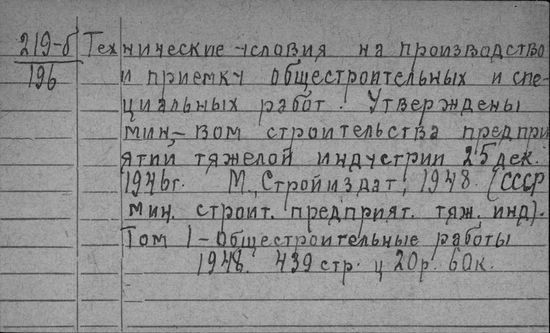 219-б Технические условия на производство
196 и приемку общестроительных и спе-
циальных работ. Утверждены
мин-вом строительства предпри
ятий тяжелой индустрии 25 дек.
1946г. М., Стройиздат, 1948. (СССР
мин. строит. предприят. тяж. инд).
Том 1 - Общестроительные работы
1948. 439 стр. ц 20р. 60к.